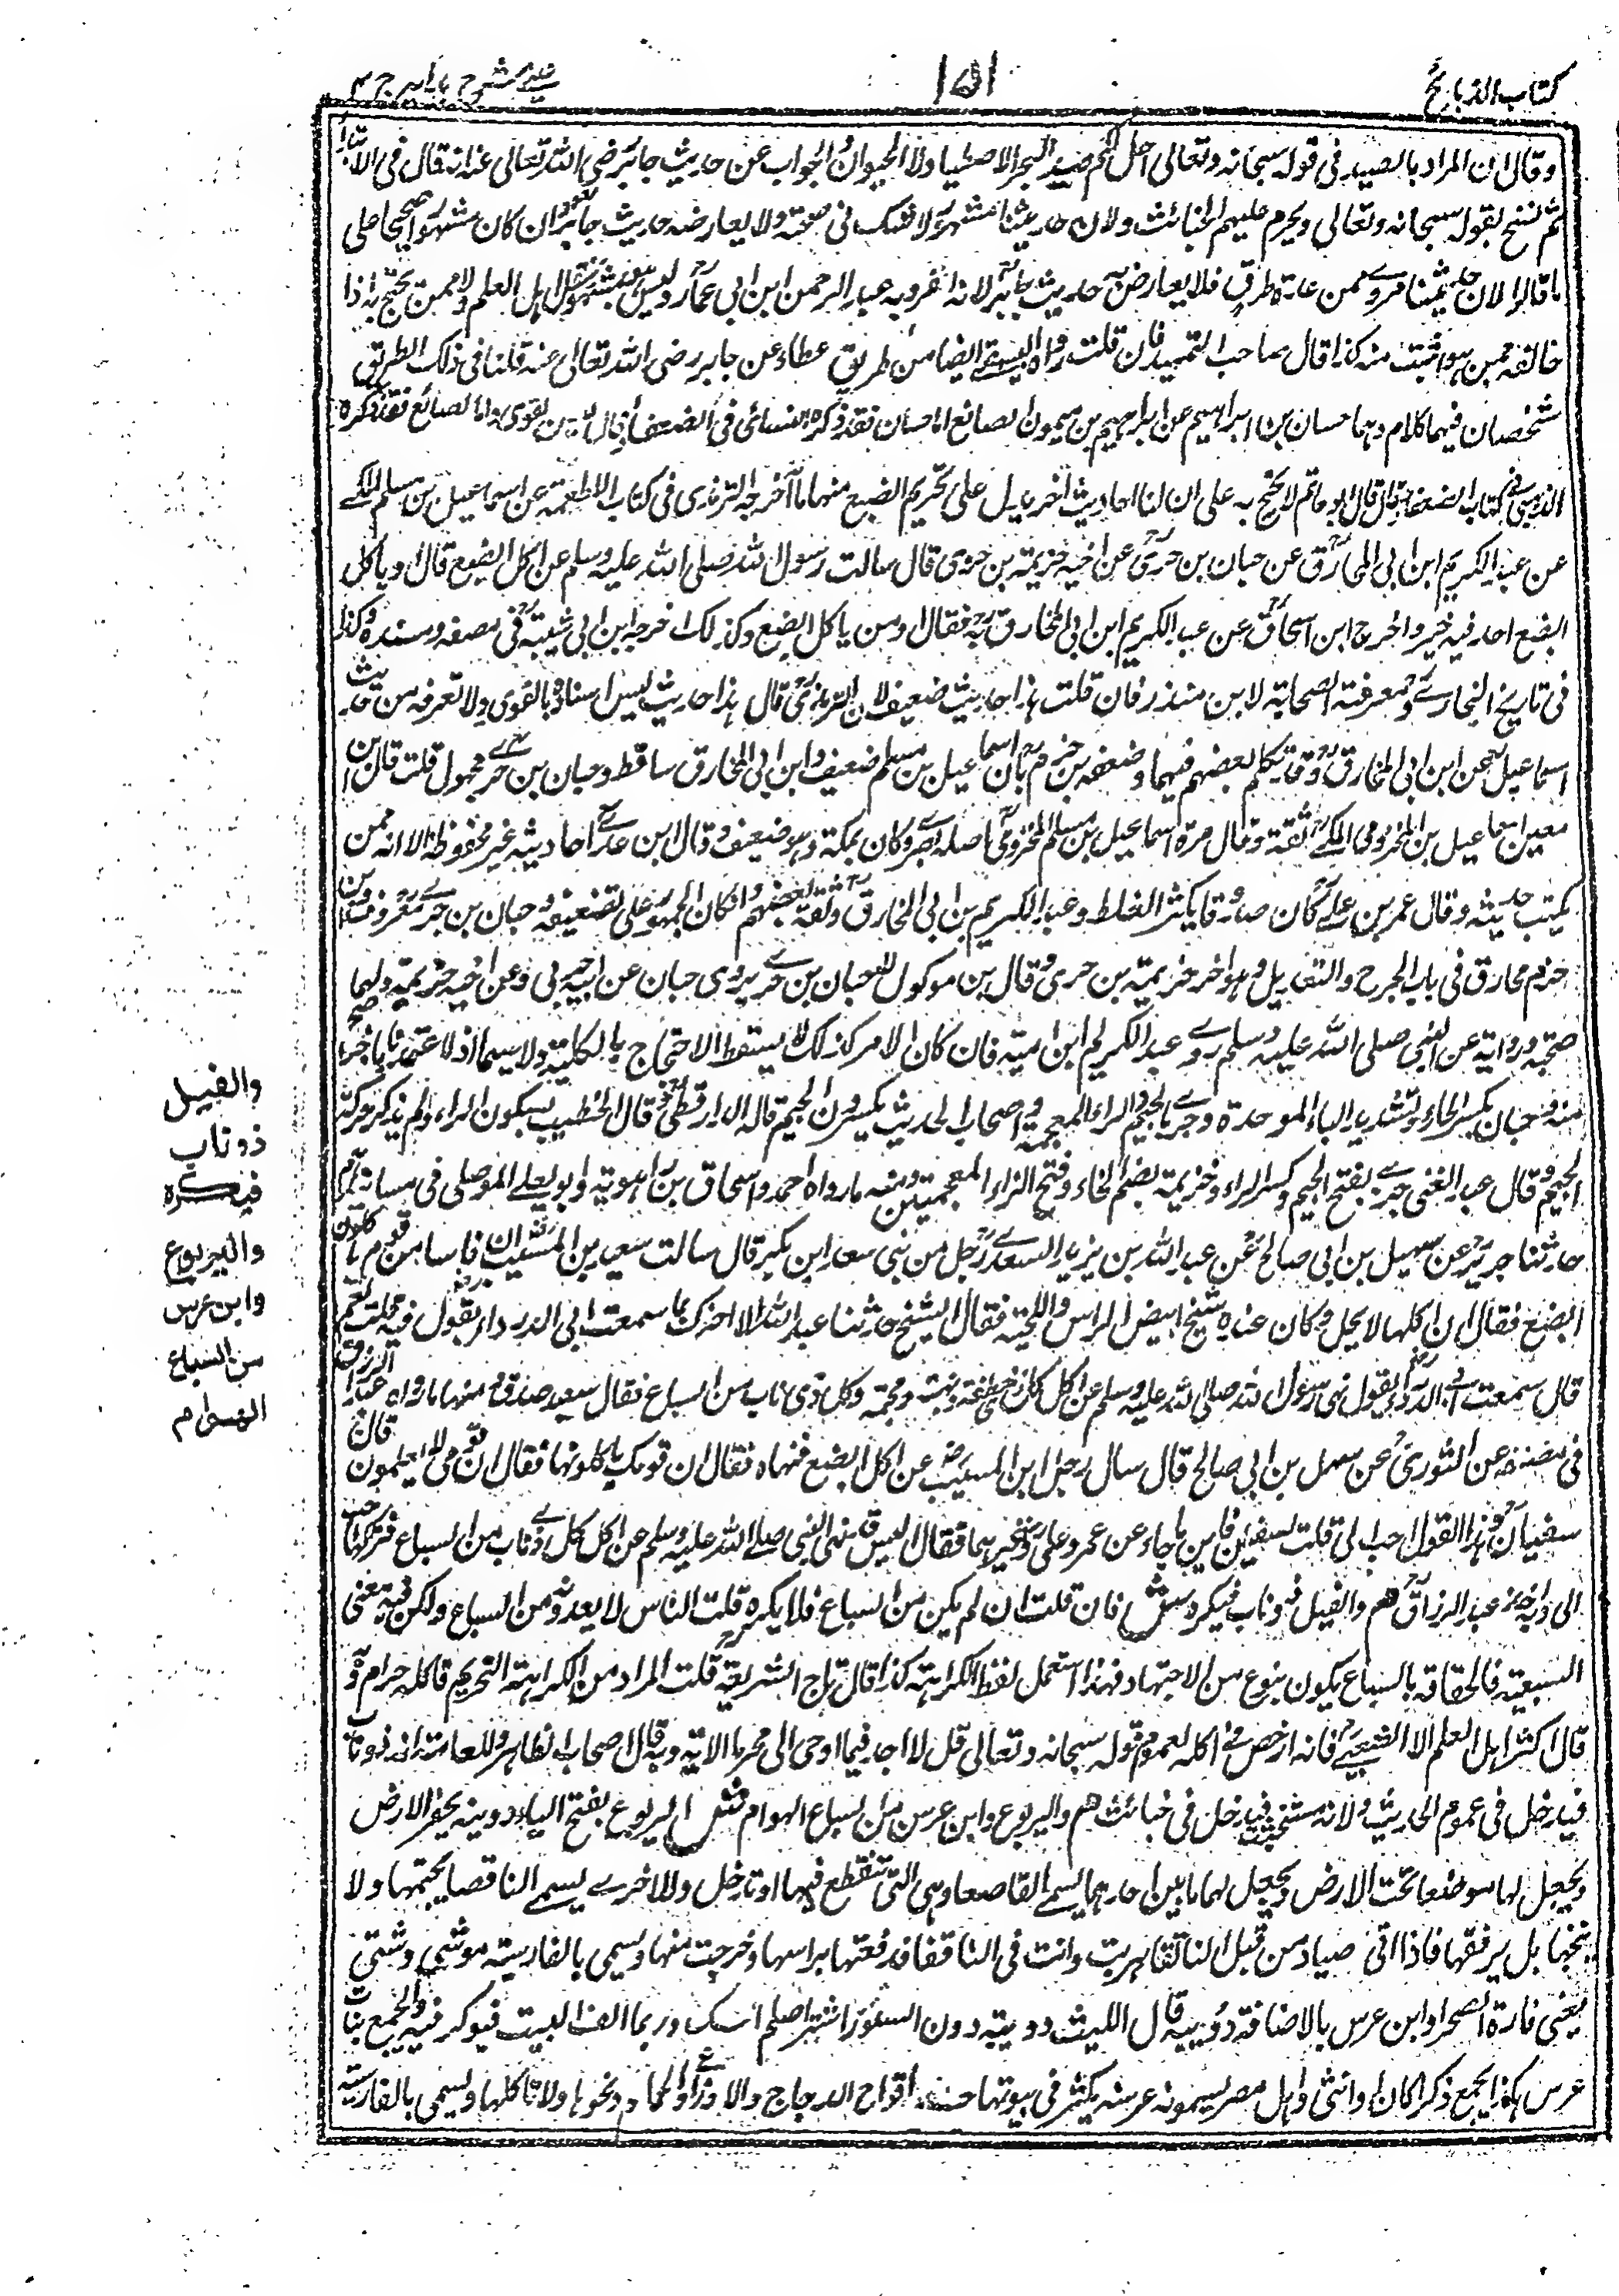 كتاب الذبائح
١٥١
عيني شرح هدايه ج ٤
وقال ان المراد بالصيد في قوله سبحانه وتعالى احل لكم صيد البحر الاصطياد ولا الحيوان والجواب عن حديث جابر رضي الله تعالى عنه انه قال في الابتداء
ثم نسخ بقوله سبحانه وتعالى ويحرم عليهم الخبائث ولان حديثنا مشهور لا شك في صحته ولا يعارضه حديث جابر وان كان مشهورا صحيحا على
ما قالوا لان حديثنا مروي من عدة طرق فلا يعارض حديث جابر لانه انفرد به عبد الرحمن ابن ابي عمار وليس بمشهور بنقل اهل العلم ولا ممن يحتج به اذا
خالفه ممن هو اثبت منه كذا قال صاحب التمهيد فان قلت رواه البيهقي ايضا من طريق عطاء عن جابر رضي الله تعالى عنه قلنا في ذلك الطريق
شخصان فيهما كلام وهما حسان بن ابراهيم عن ابراهيم بن ميمون الصائغ اما حسان فقد ذكره النسائي في الضعفاء قال ليس بالقوي واما الصائغ فقد ذكره
الذهبي في كتاب الضعفاء قال قال ابو حاتم لا يحتج به على ان لنا احاديث اخر يدل على تحريم الضبع منها ما اخرجه الترمذي في كتاب الاطعمة عن اسماعيل بن مسلم المكي
عن عبد الكريم ابن ابي المخارق عن حبان بن جزي عن اخيه خزيمة بن جزي قال سالت رسول الله صلى الله عليه وسلم عن اكل الضبع قال او ياكل
الضبع احد فيه خير واخرج ابن اسحاق عن عبد الكريم ابن ابي المخارق به فقال ومن ياكل الضبع وكذلك اخرجه ابن ابي شيبة في مصنفه ومسنده وكذا
في تاريخ البخاري ومعرفة الصحابة لابن منذر فان قلت هذا حديث ضعيف لان الترمذي قال هذا حديث ليس اسناده بالقوي ولا نعرفه من حديث
اسماعيل عن ابن ابي المخارق وقد تكلم بعضهم فيهما وضعفه بن حزم بان اسماعيل بن مسلم ضعيف وابن ابي المخارق ساقط وحبان بن جزي مجهول قلت قال ابن
معين اسماعيل بن المخزومي المكي ثقة وقال مرة اسماعيل بن مسلم المخزومي اصله بصري وكان بمكة وهو ضعيف وقال ابن عدي احاديثه غير محفوظة الا انه ممن
يكتب حديثه وقال عمر بن علي كان صدوقا يكثر الغلط وعبد الكريم بن ابي المخارق وثقه بعضهم وان كان الجمهور على تضعيفه وحبان بن جزي معروف وابن
حزم مخارق في باب الجرح والتعديل وهو اخو خزيمة بن جزي وقال بن موكول حبان بن جزي يروي حبان عن ابيه جزي وعن اخيه خزيمة ولهما
صحبة ورواية عن النبي صلى الله عليه وسلم روى عبد الكريم ابن امية فان كان الامر كذلك لا يسقط الاحتجاج بالكلية ولا سيما اذا اعتمدنا بما اخرجه
منه وحبان بكسر الحاء وتشديد الباء الموحدة وجزي بالجيم والزاء المعجمة واصحاب الحديث يكسرون الجيم قاله الدارقطني وقال الخطيب بسكون الزاء ولم يذكر حركة
الجيم وقال عبد الغني جزي بفتح الجيم وكسر الزاء وخزيمة بضم الخاء وفتح الزاء المعجمتين ومنه ما رواه احمد واسحاق بن راهويه وابو يعلى الموصلي في مسانيدهم
حدثنا جرير عن سهيل بن ابي صالح عن عبد الله بن يزيد السعدي رجل من بني سعد ابن بكر قال سالت سعيد بن المسيب ان ناسا من قومي ياكلون
الضبع فقال ان اكلها لا يحل وكان عنده شيخ ابيض الراس واللحية فقال الشيخ حدثنا عبد الله الا اخبرك بما سمعت ابي الدرداء يقول فيه قلت نعم
قال سمعت ابي الدرداء يقول نهى رسول الله صلى الله عليه وسلم عن اكل كل خطفة ونهبة ومجثمة وكل ذي ناب من السباع فقال سعيد صدق ومنها ما رواه عبد الرزاق
في مصنفه عن الثوري عن سهل بن ابي صالح قال سال رجل ابن المسيب عن اكل الضبع فنهاه فقال ان قومك ياكلونها فقال ان قومي لا يعلمون قال
سفيان وهذا القول احب الي قلت لسفيان فاين ما جاء عن عمر وعلي وغيرهما فقال اليس قد نهى النبي صلى الله عليه وسلم عن اكل كل ذي ناب من السباع فتركها احب
الي وبه اخذ عبد الرزاق هم والفيل ذو ناب فيكره ش فان قلت ان لم يكن من السباع فلا يكره قلت الناس لا يعدوه من السباع ولكن فيه معنى
السبعية فالحاقه بالسباع يكون بنوع من الاجتهاد فلهذا استعمل لفظ الكراهة كذا قال تاج الشريعة قلت المراد من الكراهة التحريم فاكله حرام وبه
قال اكثر اهل العلم الا الشعبي فانه ارخص في اكله لعموم قوله سبحانه وتعالى قل لا اجد فيما اوحي الي محرما الاية وبه قال اصحاب الظاهر وللعامة انه ذو ناب
فيدخل في عموم الحديث ولانه مستخبث فيدخل في خبائث هم واليربوع وابن عرس من السباع الهوام ش اليربوع بفتح الياء دويبة يحفر الارض
ويجعل لها موضعا تحت الارض ويجعل لها بابين احدهما يسمى القاصعا وهي التي تنقطع فيها اوتدخل والاخرى يسمى النافقصا يحتمها ولا
ينخجها بل يرفقها فاذا اتى صياد من قبل النافقا هربت وانت في النافقا فدفعتها براسها وخرجت منها ويسمى بالفارسية موشي دشتي
يعني فارة الصحرا وابن عرس بالاضافة دويبة قال الليث دويبة دون السنور اشتر اصلم اسك وربما الف البيت فيوكر فيه والجمع بنات
عرس هكذا يجمع ذكرا كان او انثى واهل مصر يسمونه عرسه يكثر في بيوتها افراخ الدجاج والاوز والحمام ونحوها ولا تاكلها ويسمى بالفارسية
والفيل
ذو ناب
فيكره
واليربوع
وابن عرس
من السباع
الهوام